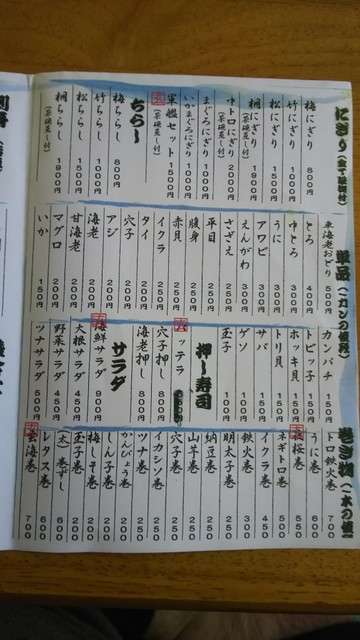 にぎり
梅にぎり 800円
竹にぎり 1000円
松にぎり 1500円
桐にぎり 1900円
(茶碗蒸し付)
中トロにぎり 2000円
(茶碗蒸し付)
まぐろにぎり 1000円
いかまぐろにぎり 1000円
軍艦セット 1500円
(茶碗蒸し付)
ちらし
梅ちらし 800円
竹ちらし 1000円
松ちらし 1500円
桐ちらし 1900円
(茶碗蒸し付)
単品 (一カンの値段)
車海老おどり 500円
とろ 400円
中とろ 300円
うに 300円
アワビ 300円
えんがわ 300円
さざえ 250円
平目 250円
赤貝 250円
イクラ 250円
タイ 200円
穴子 200円
アジ 200円
海老 200円
甘海老 200円
マグロ 200円
いか 150円
カンパチ 150円
トビッ子 150円
ホッキ貝 150円
トリ貝 150円
サバ 100円
ゲソ 100円
玉子 100円
押し寿司
バッテラ
穴子押し 800円
海老押し 800円
サラダ
海鮮サラダ 900円
大根サラダ 450円
野菜サラダ 450円
ツナサラダ 500円
巻き物 (一本の値段)
トロ鉄火巻 700
うに巻 600
桜巻 550
ネギトロ巻 500
イクラ巻 450
鉄火巻 300
明太子巻 250
納豆巻 250
山芋巻 250
穴子巻 250
イカシソ巻 250
ツナ巻 250
かんぴょう巻 200
しん子巻 200
梅しそ巻 200
玉子巻 200
(太)巻ずし 600
レタス巻 600
海巻 700